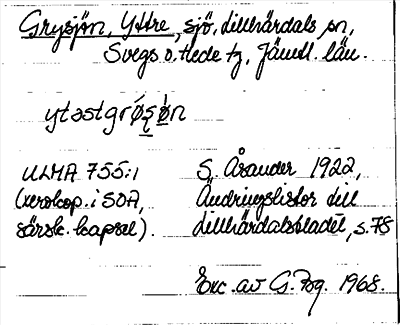 Grysjön, Yttre, sjö, Lillhärdals sn,
Svegs o. Hede tg, Jämtl. län.
ytəstgrø̀sø̀n
ULMA 755:1 S. Åsander 1922,
(xerokop. i SOA, Ändringslistor till
särsk. kapsel). Lillhärdalsbladet, s. 78
Exc. av G. Fbg. 1968.